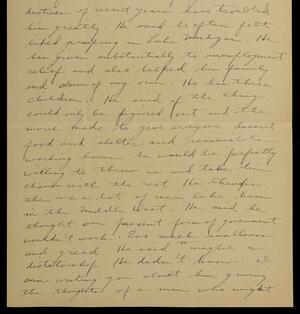 distress of recent years have troubled
him greatly. He said he often felt
liked jumping in Lake Michigan. He
has given substantially to unemployment
relief and also helped his family
and some of my own. He has three
children. He said if the thing
could only be figured out and the
move made to give everyone decent
food and shelter and reasonable
working hours he would be perfectly
willing to throw in and take his
chance with the rest. He thinks
there are a lot of men like him
in the Middle West. He said he
thought our present form of government
wouldn't work. Too much smallness
and greed. He said "maybe a
dictatorship. He didn't know. I
am writing you about him giving
the thoughts of a man who might